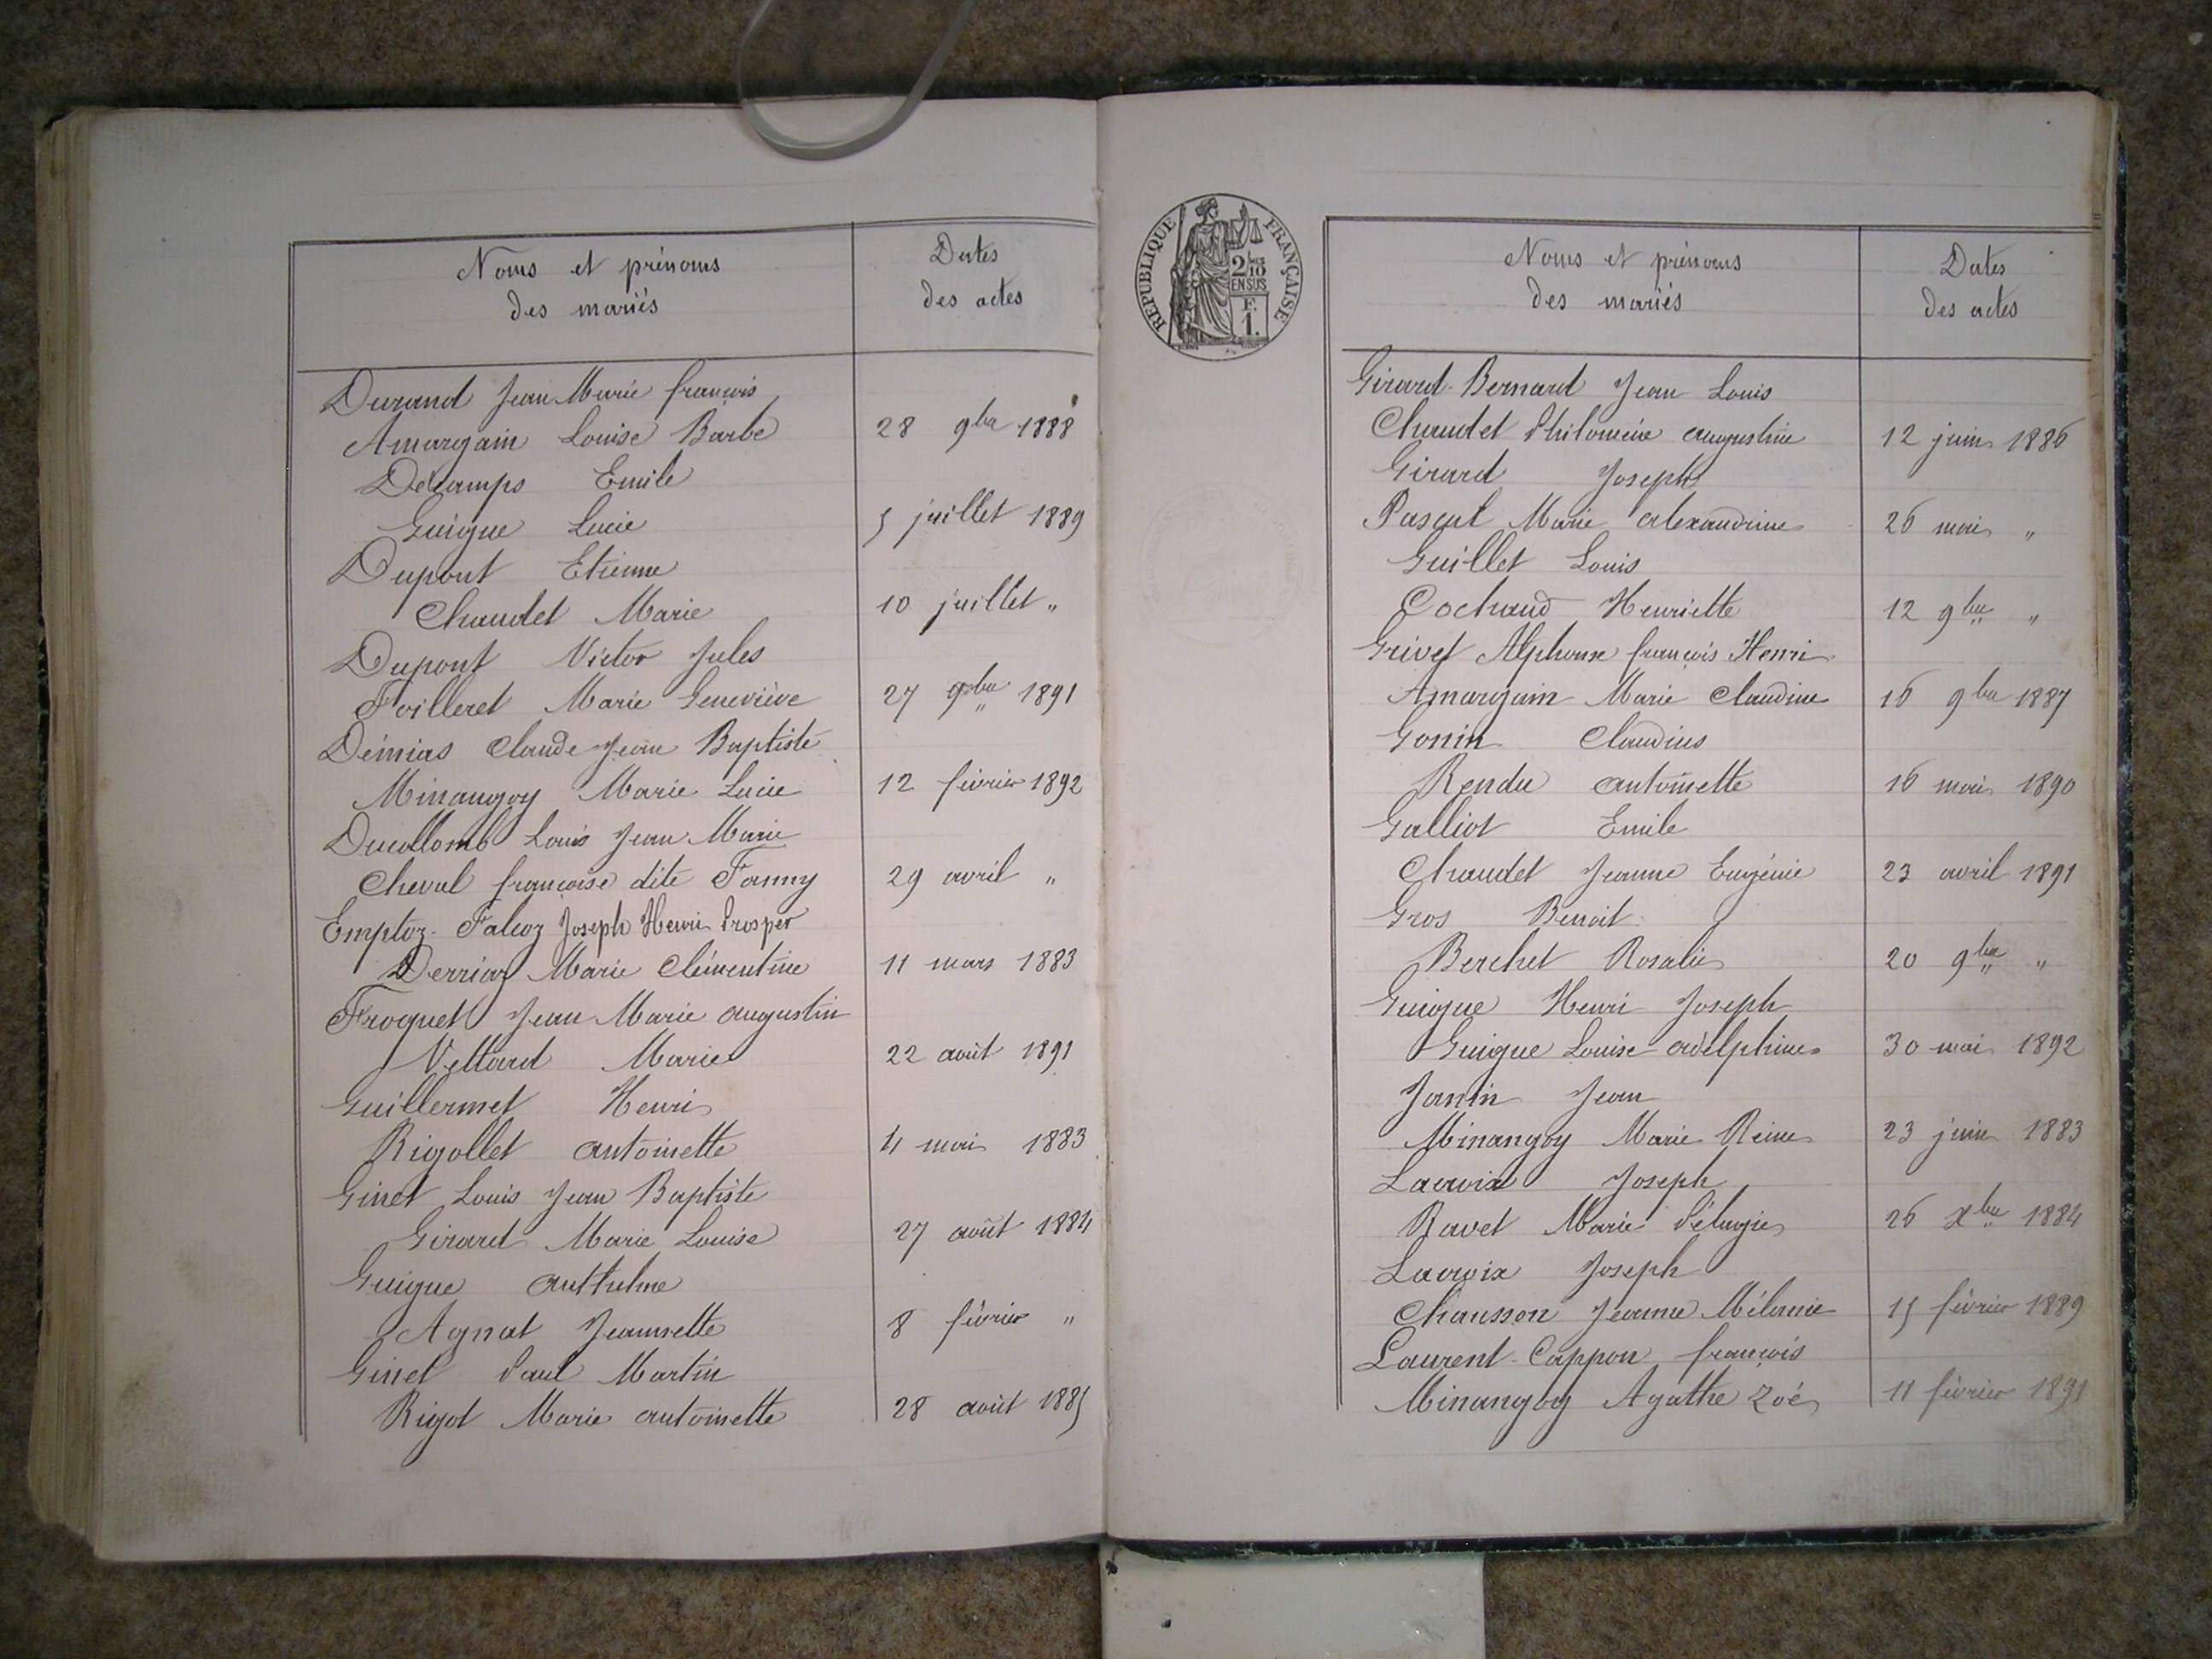 Noms et prénoms
des mariés
Dates
des actes
Durand Jean Marie françois
Amargain Louise Barbe 28 9bre 1888
Décamps Emile
Guigue Lucie 5 juillet 1889
Dupont Etienne
Chaudet Marie 10 juillet "
Dupont Victor Jules
Foilleret Marie Geneviève 27 9bre 1891
Démias Claude Jean Baptiste
Minangoy Marie Lucie 12 février 1892
Ducollomb Louis Jean Marie
Cheval françoise dite Fanny 29 avril "
Emptoz-Falcoz Joseph Henri Prosper
Derriaz Marie Clémentine 11 mars 1883
Froquet Jean Marie augustin
Vettard Marie 22 août 1891
Guillermet Henri
Rigollet antoinette 4 mai 1883
Ginet Louis Jean Baptiste
Girard Marie Louise 27 août 1884
Guigue anthelme
Agnat Jeannette 8 février "
Ginet Paul Martin
Rigot Marie antoinette 28 août 1885
REPUBLIQUE FRANÇAISE
2/10
EN SUS
F.
1.
Noms et prénoms
des mariés
Dates
des actes
Girard-Bernard Jean Louis
Chaudet Philomène augustine 12 juin 1886
Girard Joseph
Pascal Marie alexandrine 26 mai "
Guillet Louis
Cochaud Henriette 12 9bre "
Grivet Alphonse françois Henri
Amargain Marie Claudine 16 9bre 1887
Gonin Claudius
Rendu antoinette 16 mai 1890
Galliot Emile
Chaudet Jeanne Eugénie 23 avril 1891
Gros Benoit
Berchet Rosalie 20 9bre "
Guigue Henri Joseph
Guigue Louise adelphine 30 mai 1892
Janin Jean
Minangoy Marie Reine 23 juin 1883
Lacroix Joseph
Ravet Marie Pélagie 26 xbre 1884
Lacroix Joseph
Chausson Jeanne Mélanie 15 février 1889
Laurent-Cappon françois
Minangoy Agathe Zoé 11 février 1891